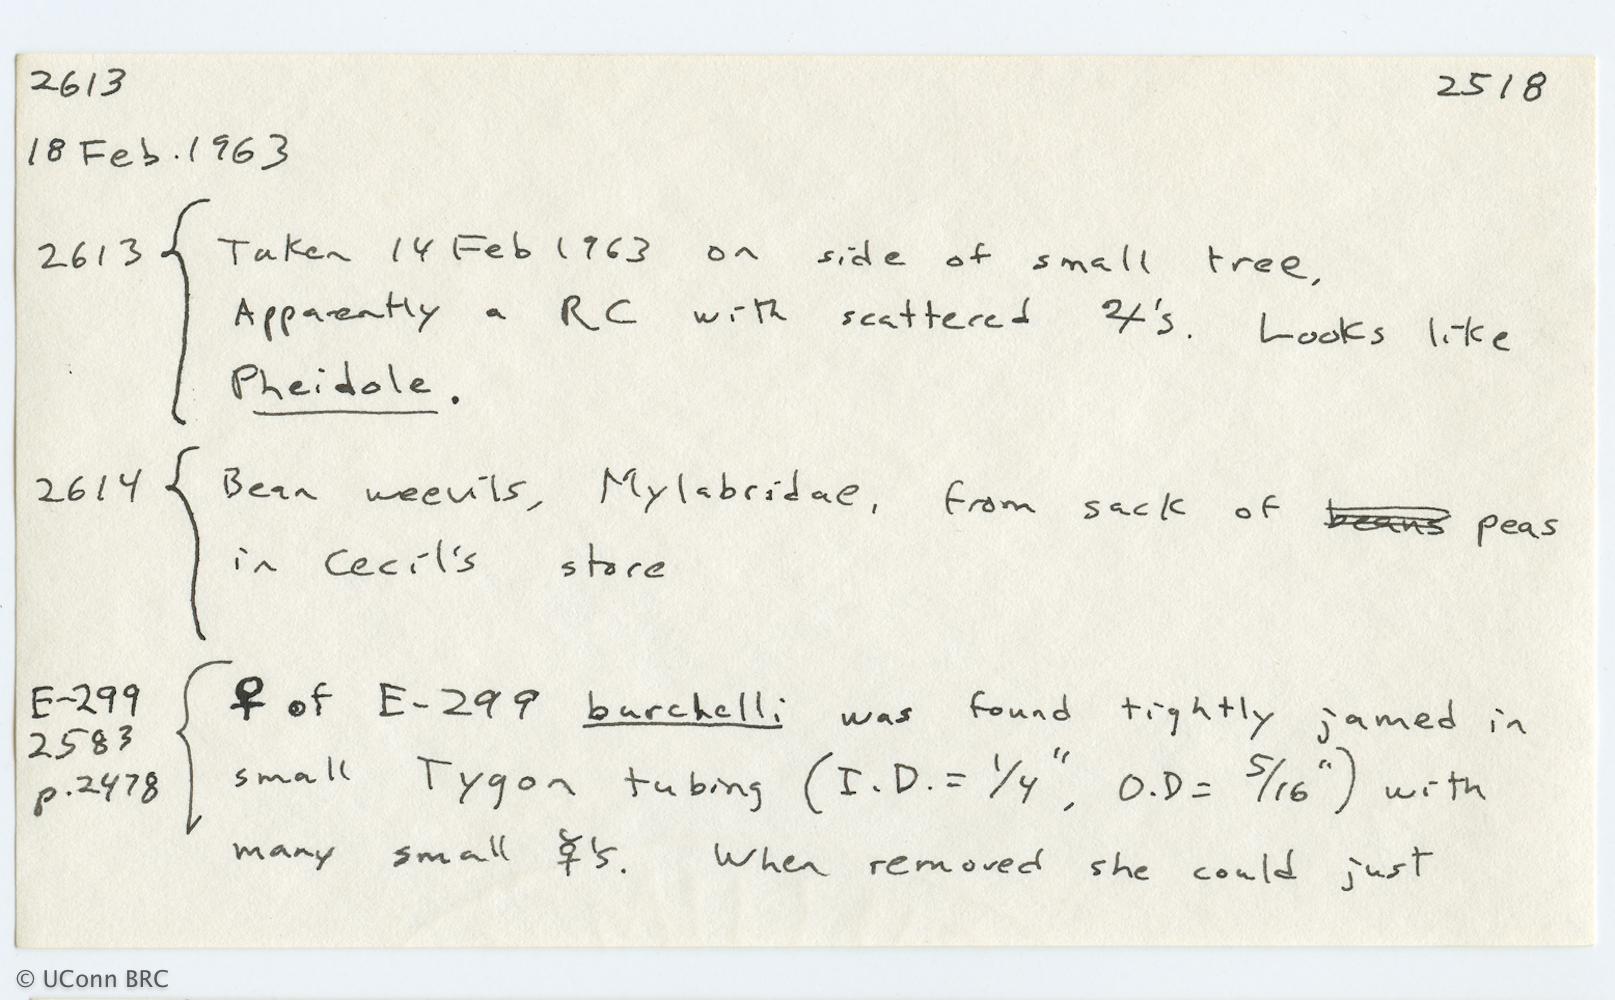 2613 2518
18 Feb. 1963
2613 { Taken 14 Feb 1963 on side of small tree.
Apparently a RC with scattered ♃'s. Looks like
Pheidole.
2614 { Bean weevils, Mylabridae, from sack of ~~beans~~ peas
in Cecil's store
E-299 { ♀ of E-299 burchelli was found tightly jamed in
2583
p.2478 small Tygon tubing (I.D. = 1/4", O.D = 5/16") with
many small ☿'s. When removed she could just
© UConn BRC